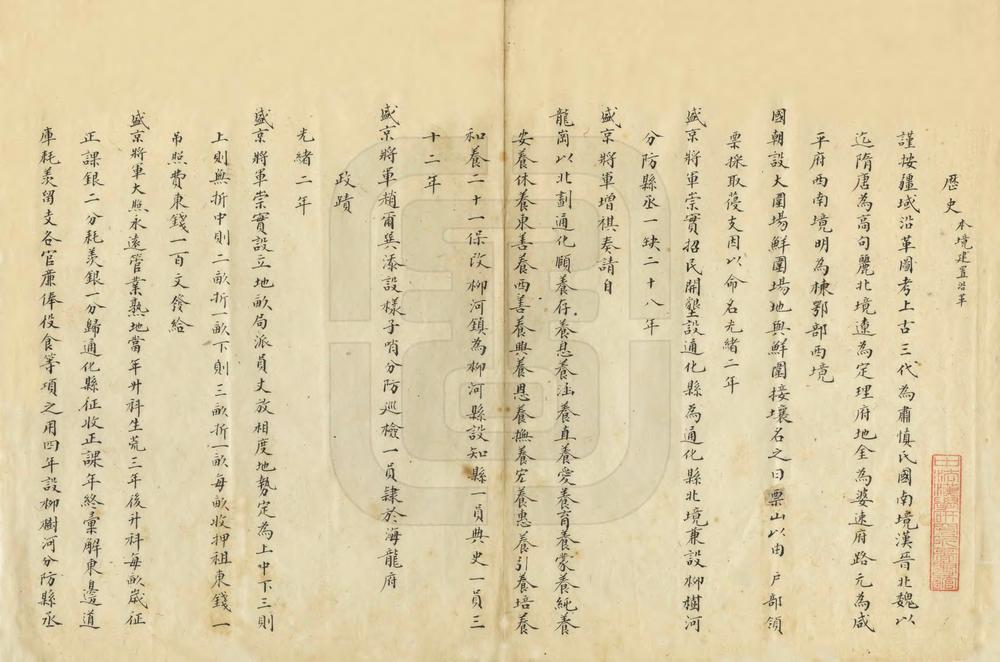 歷史 本境建置沿革
謹按疆域沿革圖考上古三代為肅慎氏國南境漢晉北魏以
迄隋唐為高句麗北境遼為定理府地金為婆速府路元為咸
平府西南境明為棟鄂部西境
國朝設大圍場鮮圍場地與鮮圍接壤名之曰票山以由戶部領
票採取葠支因以命名光緒二年
盛京將軍崇實招民開墾設通化縣為通化縣北境兼設柳樹河
分防縣丞一缺二十八年
盛京將軍增祺奏請自
龍崗以北劃通化頤養存養息養涵養直養愛養育養蒙養純養
安養休養東善養西善養興養恩養撫養宏養惠養引養培養
和養二十一保改柳河鎮為柳河縣設知縣一員典史一員三
十二年
盛京將軍趙爾巽添設樣子哨分防巡檢一員隸於海龍府
政蹟
光緒二年
盛京將軍崇實設立地畝局派員丈放相度地勢定為上中下三則
上則無折中則二畝折一畝下則三畝折一畝每畝收押租東錢一
吊照費東錢一百文發給
盛京將軍大照永遠管業熟地當年升科生荒三年後升科每畝歲征
正課銀二分耗羨銀一分歸通化縣征收正課年終彙解東邊道
庫耗羨留支各官廉俸役食等項之用四年設柳樹河分防縣丞